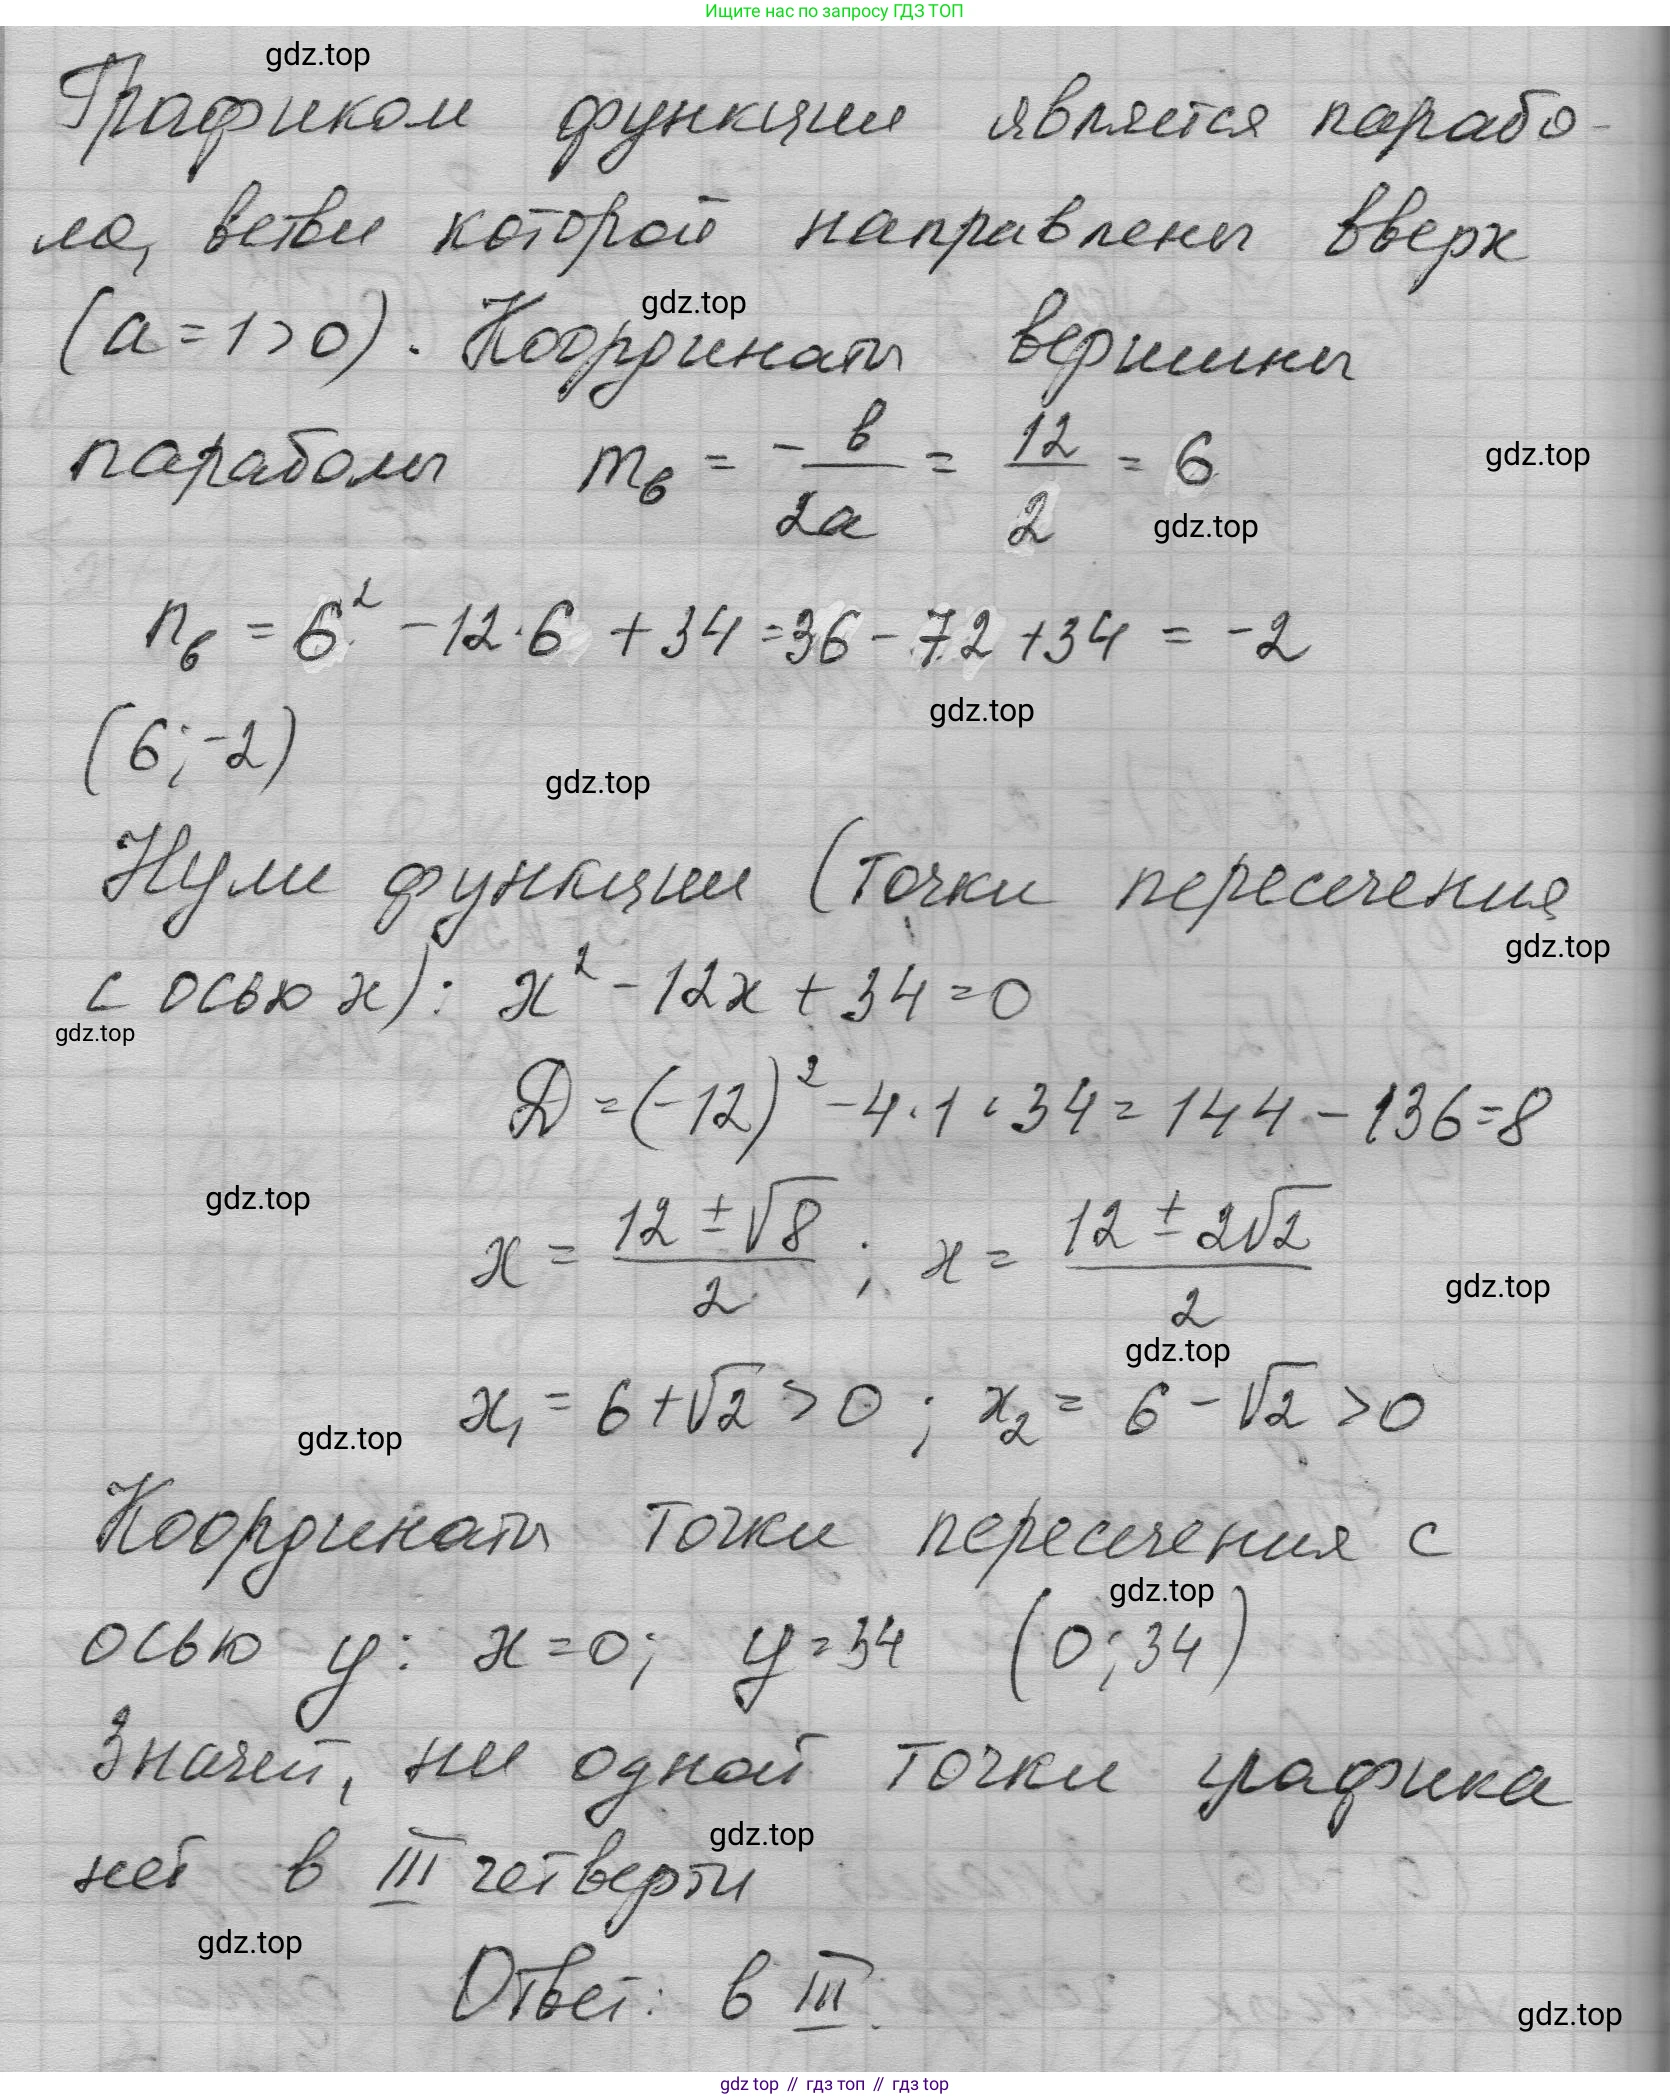 Ищите нас по запросу ГДЗ ТОП
gdz.top
Графиком функции является парабо-
ла, ветви которой направлены вверх
(a = 1 > 0). Координаты вершины
gdz.top
параболы m_в = -b/2a = 12/2 = 6
gdz.top
gdz.top
n_в = 6² - 12·6 + 34 = 36 - 72 + 34 = -2
gdz.top
(6; -2)
gdz.top
Нули функции (точки пересечения
gdz.top
с осью x): x² - 12x + 34 = 0
gdz.top
D = (-12)² - 4·1·34 = 144 - 136 = 8
gdz.top
x = (12 ± √8)/2 ; x = (12 ± 2√2)/2
gdz.top
gdz.top
x₁ = 6 + √2 > 0 ; x₂ = 6 - √2 > 0
gdz.top
Координаты точки пересечения с
gdz.top
осью y: x = 0; y = 34 (0; 34)
Значит, ни одной точки графика
gdz.top
нет в III четверти
gdz.top
Ответ: в III.
gdz.top
gdz top // гдз топ // гдз top